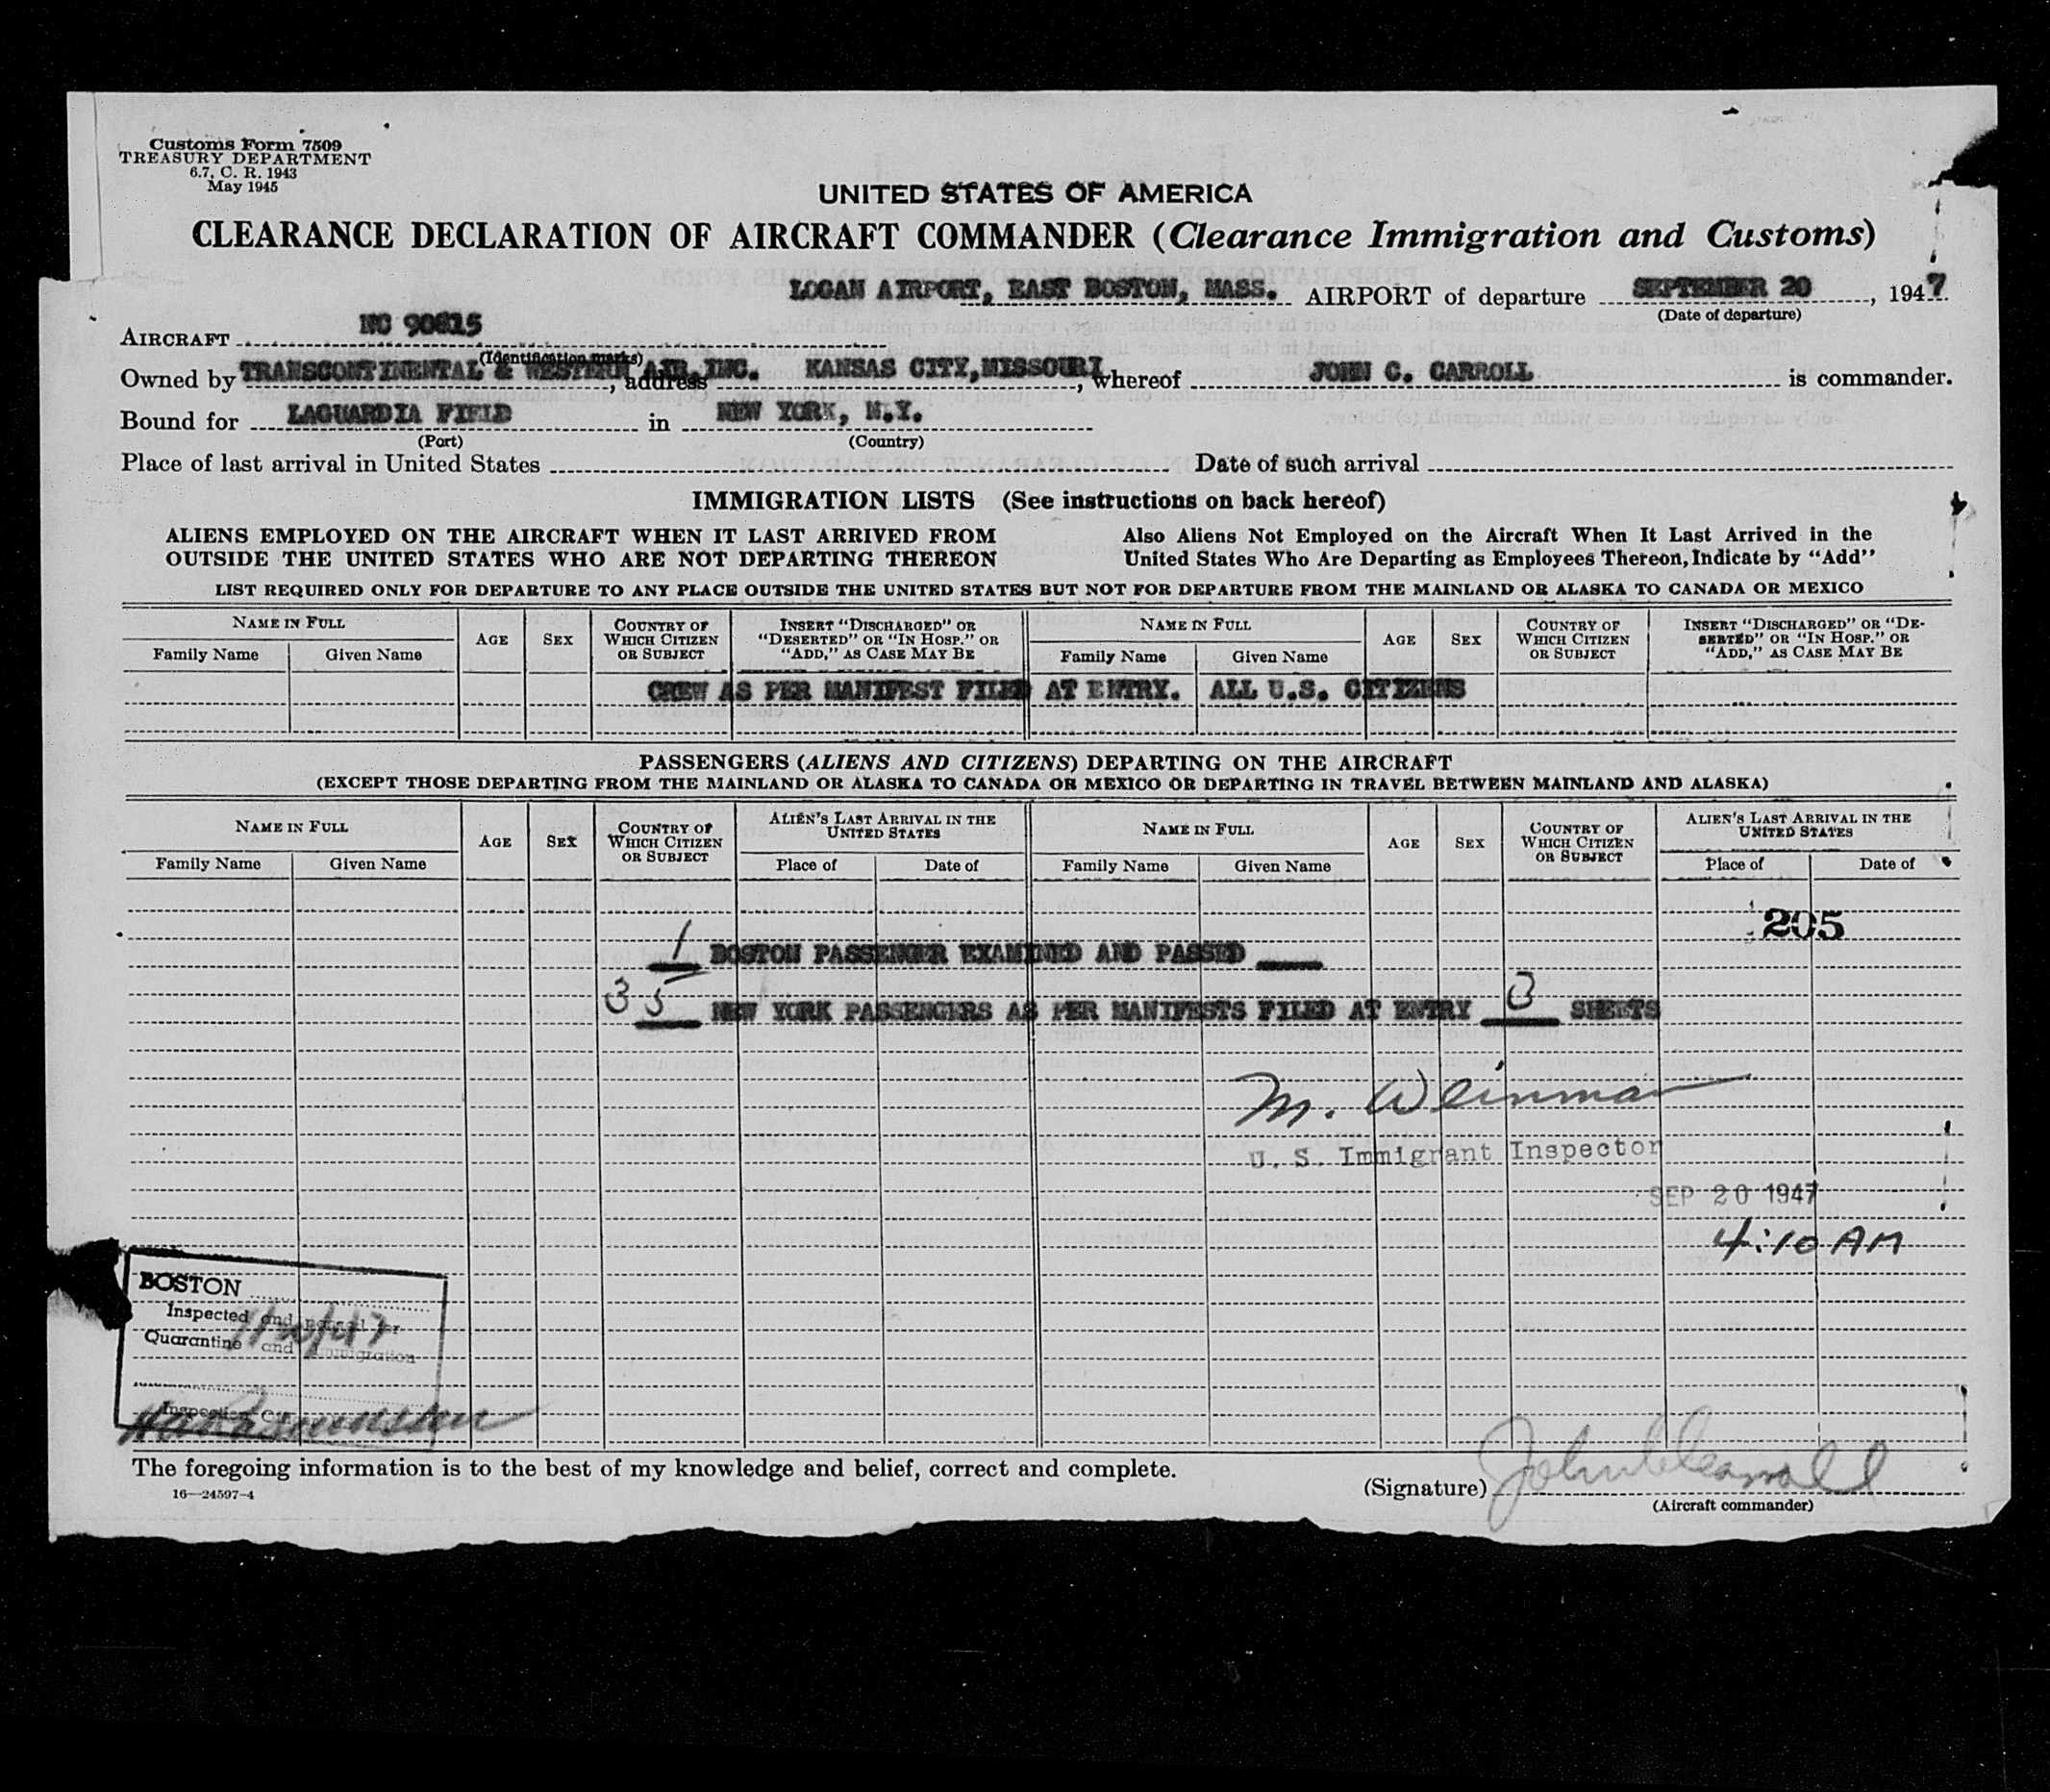 Customs Form 7509
TREASURY DEPARTMENT
6.7, C. R. 1943
May 1945
UNITED STATES OF AMERICA
CLEARANCE DECLARATION OF AIRCRAFT COMMANDER (Clearance Immigration and Customs)
LOGAN AIRPORT, EAST BOSTON, MASS. AIRPORT of departure SEPTEMBER 20, 1947
(Date of departure)
AIRCRAFT NC 90815
(Identification marks)
Owned by TRANSCONTINENTAL & WESTERN AIR, INC., address KANSAS CITY, MISSOURI, whereof JOHN C. CARROLL is commander.
Bound for LAGUARDIA FIELD in NEW YORK, N.Y.
(Port) (Country)
Place of last arrival in United States Date of such arrival
IMMIGRATION LISTS (See instructions on back hereof)
ALIENS EMPLOYED ON THE AIRCRAFT WHEN IT LAST ARRIVED FROM
OUTSIDE THE UNITED STATES WHO ARE NOT DEPARTING THEREON
Also Aliens Not Employed on the Aircraft When It Last Arrived in the
United States Who Are Departing as Employees Thereon, Indicate by "Add"
LIST REQUIRED ONLY FOR DEPARTURE TO ANY PLACE OUTSIDE THE UNITED STATES BUT NOT FOR DEPARTURE FROM THE MAINLAND OR ALASKA TO CANADA OR MEXICO
NAME IN FULL
Family Name Given Name
AGE
SEX
COUNTRY OF
WHICH CITIZEN
OR SUBJECT
INSERT "DISCHARGED" OR
"DESERTED" OR "IN HOSP." OR
"ADD," AS CASE MAY BE
NAME IN FULL
Family Name Given Name
AGE
SEX
COUNTRY OF
WHICH CITIZEN
OR SUBJECT
INSERT "DISCHARGED" OR "DE-
SERTED" OR "IN HOSP." OR
"ADD," AS CASE MAY BE
CREW AS PER MANIFEST FILED AT ENTRY. ALL U.S. CITIZENS
PASSENGERS (ALIENS AND CITIZENS) DEPARTING ON THE AIRCRAFT
(EXCEPT THOSE DEPARTING FROM THE MAINLAND OR ALASKA TO CANADA OR MEXICO OR DEPARTING IN TRAVEL BETWEEN MAINLAND AND ALASKA)
NAME IN FULL
Family Name Given Name
AGE
SEX
COUNTRY OF
WHICH CITIZEN
OR SUBJECT
ALIEN'S LAST ARRIVAL IN THE
UNITED STATES
Place of Date of
NAME IN FULL
Family Name Given Name
AGE
SEX
COUNTRY OF
WHICH CITIZEN
OR SUBJECT
ALIEN'S LAST ARRIVAL IN THE
UNITED STATES
Place of Date of
205
1 BOSTON PASSENGER EXAMINED AND PASSED
35 NEW YORK PASSENGERS AS PER MANIFESTS FILED AT ENTRY 3 SHEETS
M. Weinman
U. S. Immigrant Inspector
SEP 20 1947
4:10 AM
BOSTON
Inspected and passed for
Quarantine and Immigration
The foregoing information is to the best of my knowledge and belief, correct and complete.
16—24597-4
(Signature) John C Carroll
(Aircraft commander)